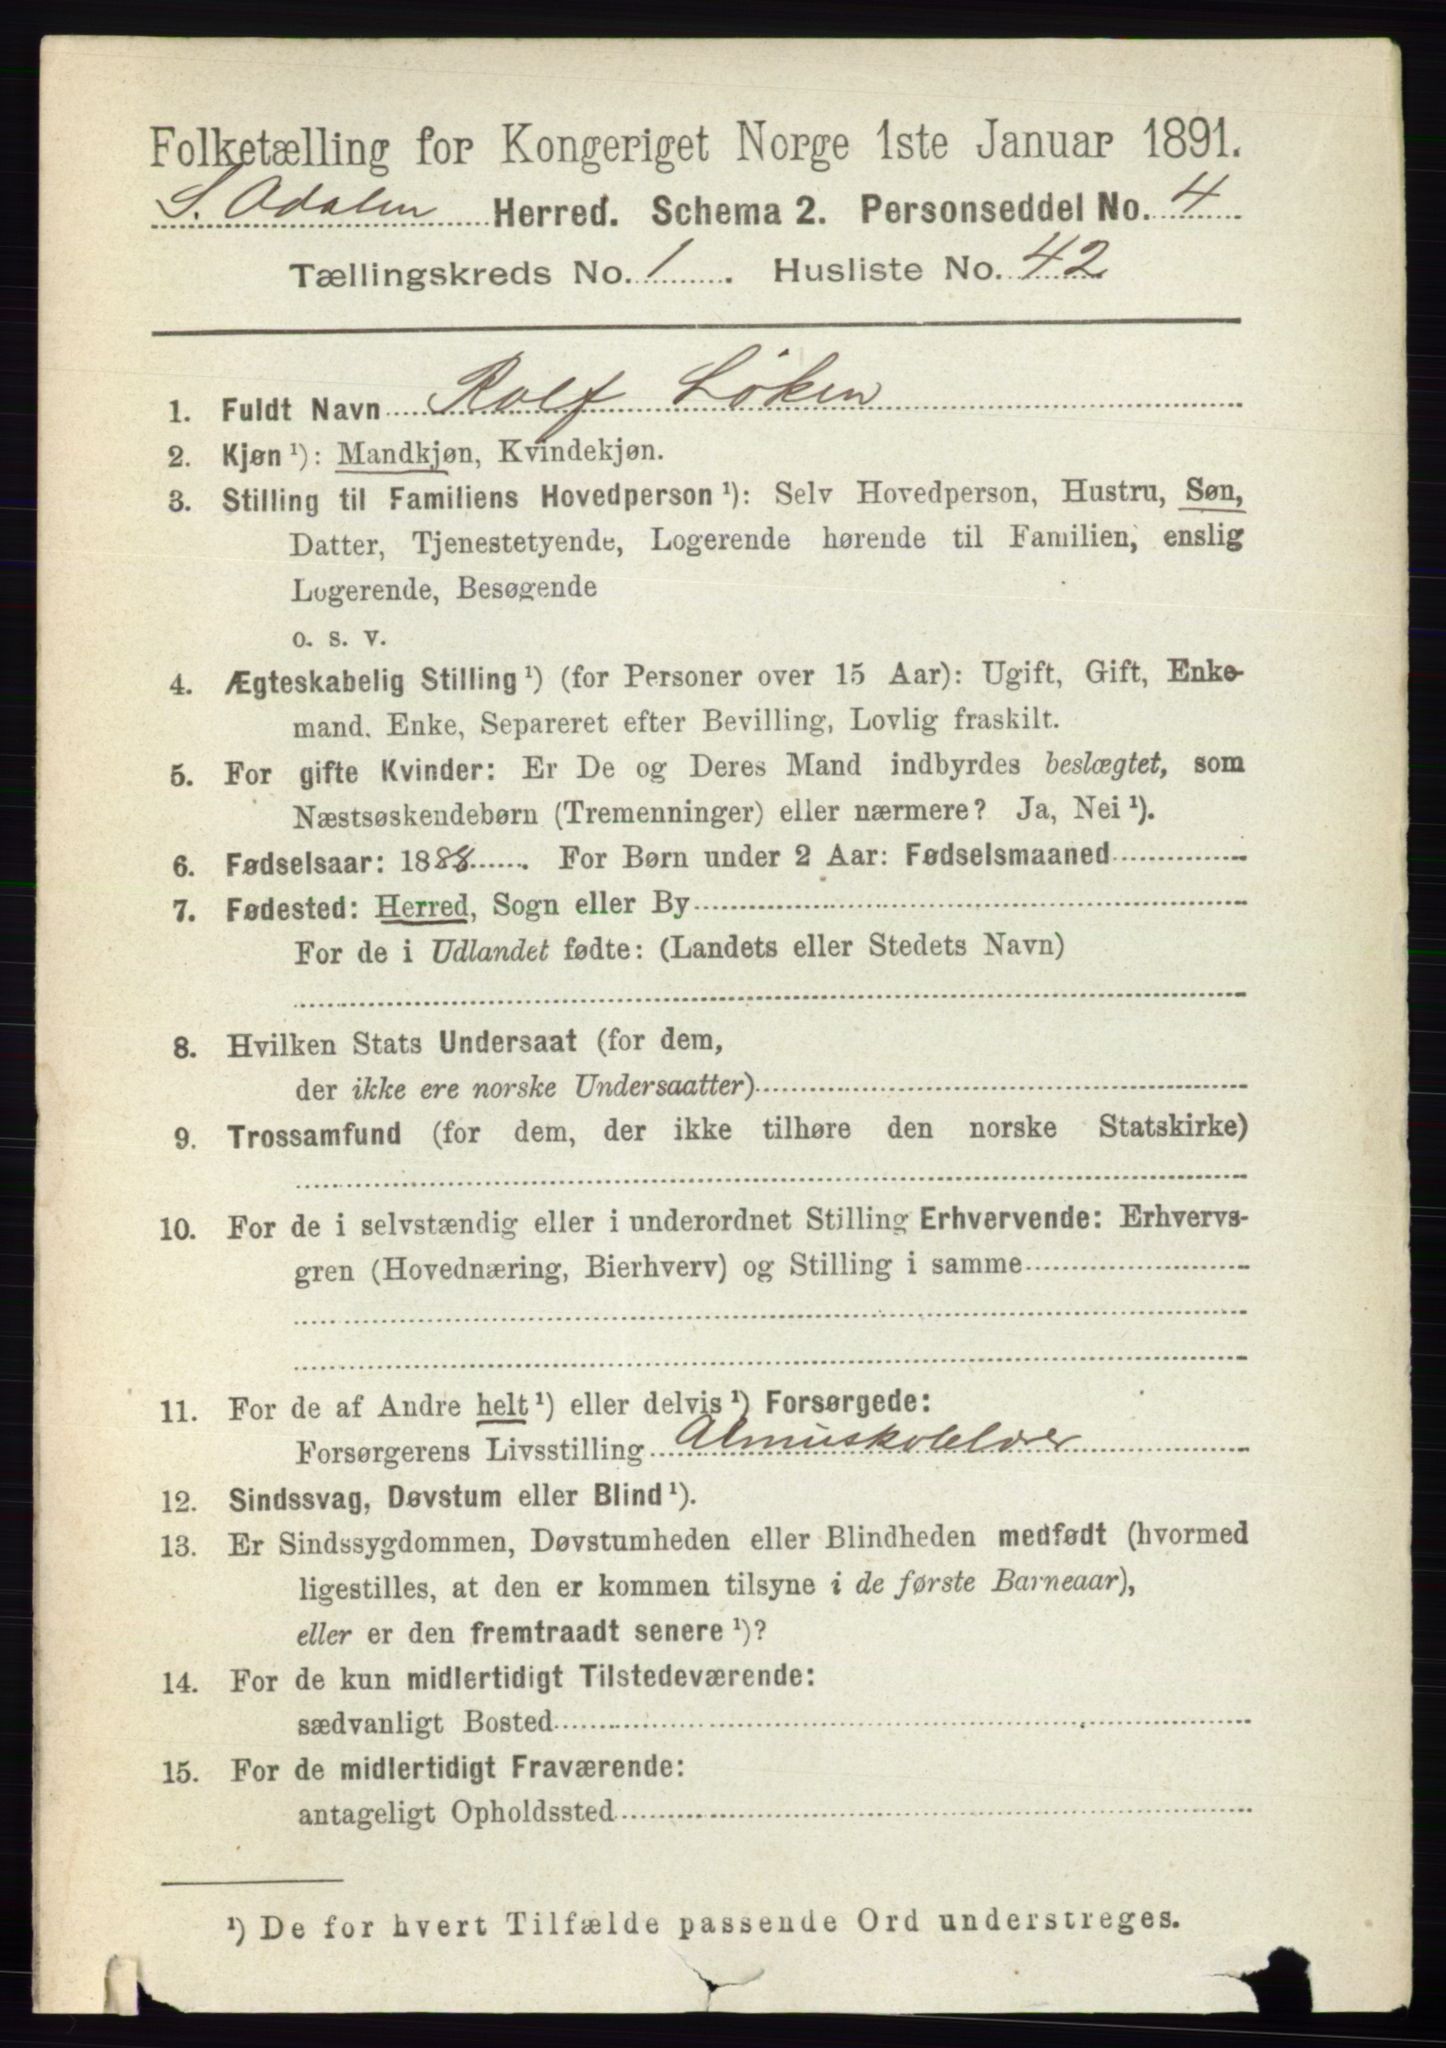 Folketælling for Kongeriget Norge 1ste Januar 1891.
S. Odalen Herred. Schema 2. Personseddel No. 4
Tællingskreds No. 1. Husliste No. 42
1. Fuldt Navn Rolf Löken
2. Kjøn ¹): Mandkjøn, Kvindekjøn.
3. Stilling til Familiens Hovedperson ¹): Selv Hovedperson, Hustru, Søn,
Datter, Tjenestetyende, Logerende hørende til Familien, enslig
Logerende, Besøgende
o. s. v.
4. Ægteskabelig Stilling ¹) (for Personer over 15 Aar): Ugift, Gift, Enke-
mand. Enke, Separeret efter Bevilling, Lovlig fraskilt.
5. For gifte Kvinder: Er De og Deres Mand indbyrdes beslægtet, som
Næstsøskendebørn (Tremenninger) eller nærmere? Ja, Nei ¹).
6. Fødselsaar: 1888. For Børn under 2 Aar: Fødselsmaaned
7. Fødested: Herred, Sogn eller By
For de i Udlandet fødte: (Landets eller Stedets Navn)
8. Hvilken Stats Undersaat (for dem,
der ikke ere norske Undersaatter)
9. Trossamfund (for dem, der ikke tilhøre den norske Statskirke)
10. For de i selvstændig eller i underordnet Stilling Erhvervende: Erhvervs-
gren (Hovednæring, Bierhverv) og Stilling i samme
11. For de af Andre helt ¹) eller delvis ¹) Forsørgede:
Forsørgerens Livsstilling Almueskolelær
12. Sindssvag, Døvstum eller Blind ¹).
13. Er Sindssygdommen, Døvstumheden eller Blindheden medfødt (hvormed
ligestilles, at den er kommen tilsyne i de første Barneaar),
eller er den fremtraadt senere ¹)?
14. For de kun midlertidigt Tilstedeværende:
sædvanligt Bosted
15. For de midlertidigt Fraværende:
antageligt Opholdssted
¹) De for hvert Tilfælde passende Ord understreges.